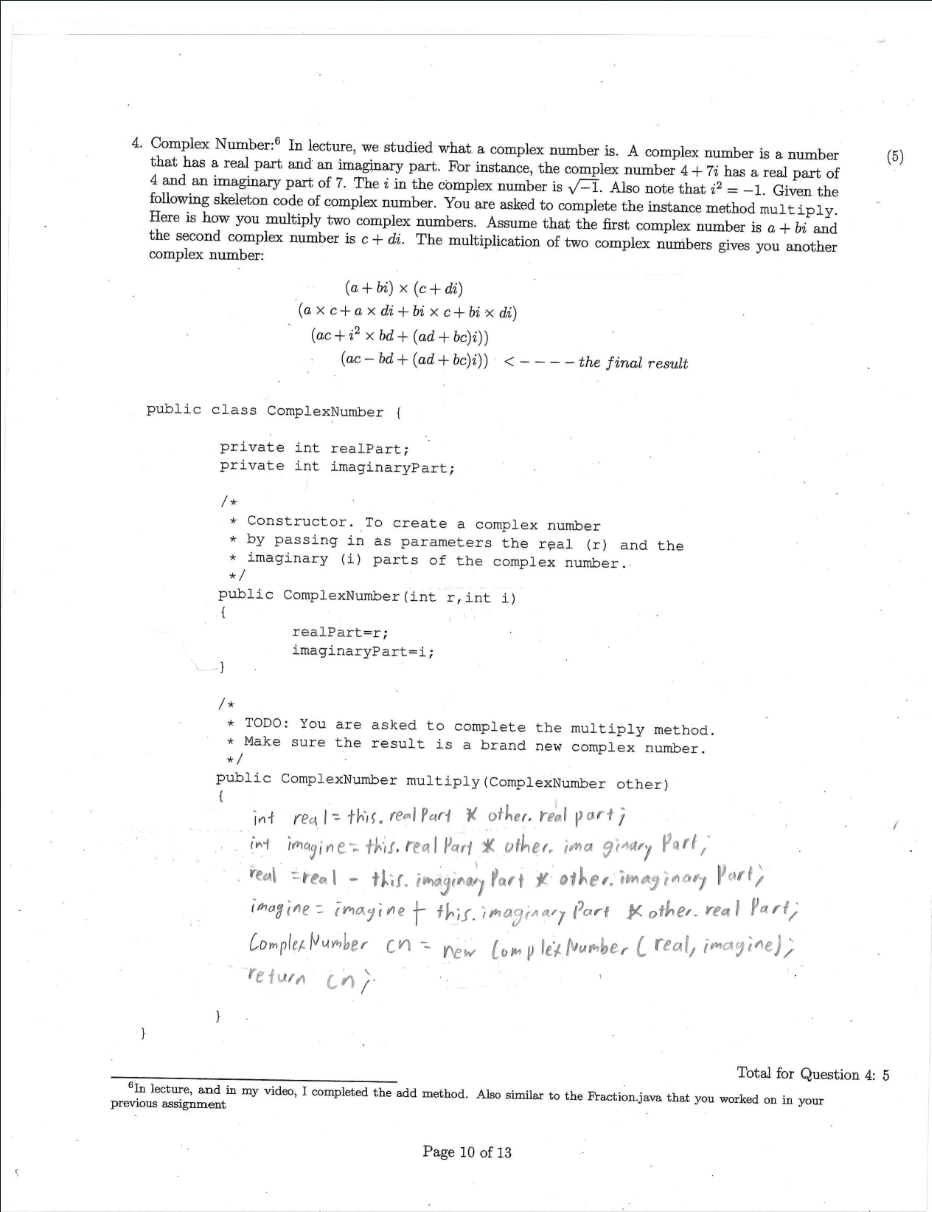 4. Complex Number:⁶ In lecture, we studied what a complex number is. A complex number is a number (5)
that has a real part and an imaginary part. For instance, the complex number 4 + 7i has a real part of
4 and an imaginary part of 7. The i in the complex number is √−1. Also note that i² = −1. Given the
following skeleton code of complex number. You are asked to complete the instance method multiply.
Here is how you multiply two complex numbers. Assume that the first complex number is a + bi and
the second complex number is c + di. The multiplication of two complex numbers gives you another
complex number:
(a + bi) × (c + di)
(a × c + a × di + bi × c + bi × di)
(ac + i² × bd + (ad + bc)i))
(ac − bd + (ad + bc)i)) < − − − − the final result
public class ComplexNumber {
private int realPart;
private int imaginaryPart;
/*
* Constructor. To create a complex number
* by passing in as parameters the real (r) and the
* imaginary (i) parts of the complex number.
*/
public ComplexNumber(int r,int i)
{
realPart=r;
imaginaryPart=i;
}
/*
* TODO: You are asked to complete the multiply method.
* Make sure the result is a brand new complex number.
*/
public ComplexNumber multiply(ComplexNumber other)
{
int real = this.realPart * other.real part;
int imagine = this.realPart * other.imaginary Part;
real = real - this.imaginary Part * other.imaginary Part;
imagine = imagine + this.imaginary Part * other.real Part;
ComplexNumber cn = new ComplexNumber(real, imagine);
return cn;
}
}
Total for Question 4: 5
⁶In lecture, and in my video, I completed the add method. Also similar to the Fraction.java that you worked on in your
previous assignment
Page 10 of 13